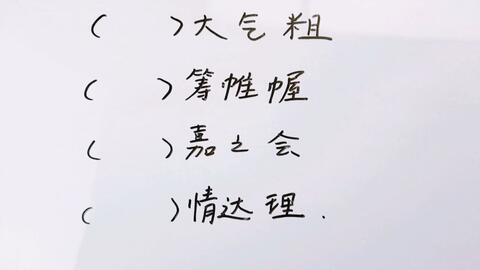 (      )大气粗
(      )筹帷幄
(      )嘉之会
(      )情达理.